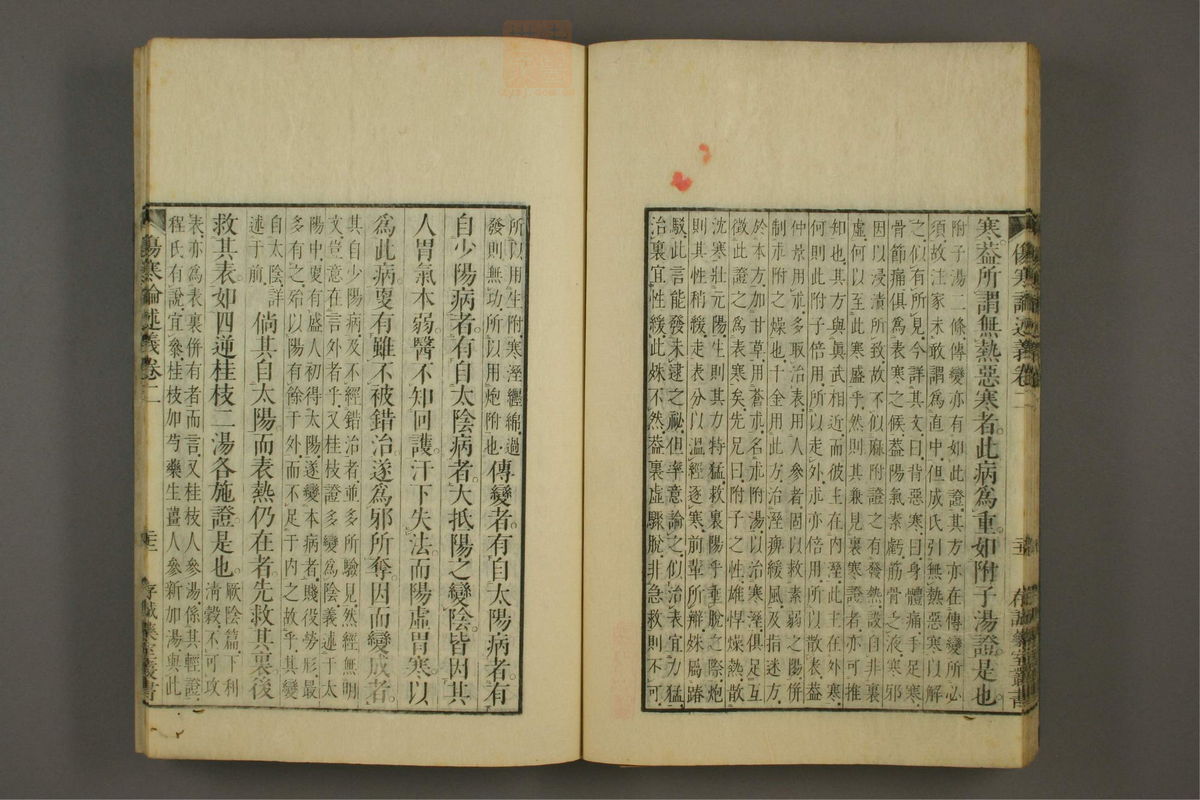 寒葢所謂無熱惡寒者此病爲重如附子湯證是也
附子湯二條傳變亦有如此證其方亦在傳變所必
須故注家未敢謂爲直中但成氏引無熱惡寒以解
之似有所見今詳其文曰背惡寒曰身體痛手足寒
骨節痛俱爲表寒之候葢陽氣素虧筋骨之液寒邪
因以浸漬所致故不似麻附證之有發熱設自非裏
虛何以至此寒盛乎然則其兼見裏寒證者亦可推
知也其方與眞武相近而彼主在內溼此主在外寒
何則此附子倍用所以走外朮亦倍用所以散表葢
仲景用朮多取治表用人參者固以救素弱之陽併
制朮附之燥也千金用此方治溼痹緩風及指迷方
於本方加甘草用蒼朮名朮附湯以治寒溼俱足互
徵此證之爲表寒矣先兄曰附子之性雄悍燥熱散
沈寒壯元陽生則其力特猛救裏陽乎垂脫之際炮
則其性稍緩走表分以溫經逐寒前輩所辯殊屬踳
駁此言能發未逮之祕但率意論之似治表宜力猛
治裏宜性緩此殊不然葢裏虛驟脫非急救則不可
傷寒論述義卷二
存誠藥室叢書
所以用生附寒溼纏綿過
發則無功所以用炮附也傳變者有自太陽病者有
自少陽病者有自太陰病者大抵陽之變陰皆因其
人胃氣本弱醫不知回護汗下失法而陽虛胃寒以
爲此病更有雖不被錯治遂爲邪所奪因而變成者
其自少陽病及不經錯治者並多所驗見然經無明
文豈意在言外者乎又桂枝證多變爲陰義述于太
陽中更有盛人初得太陽遂變本病者賤役勞形最
多有之殆以陽有餘于外而不足于內之故乎其變
自太陰詳
述于前倘其自太陽而表熱仍在者先救其裏後
救其表如四逆桂枝二湯各施證是也厥陰篇下利
清穀不可攻
表亦爲表裏併有者而言又桂枝人參湯係其輕證
程氏有說宜參桂枝加芍藥生薑人參新加湯與此
傷寒論述義卷二
存誠藥室叢書